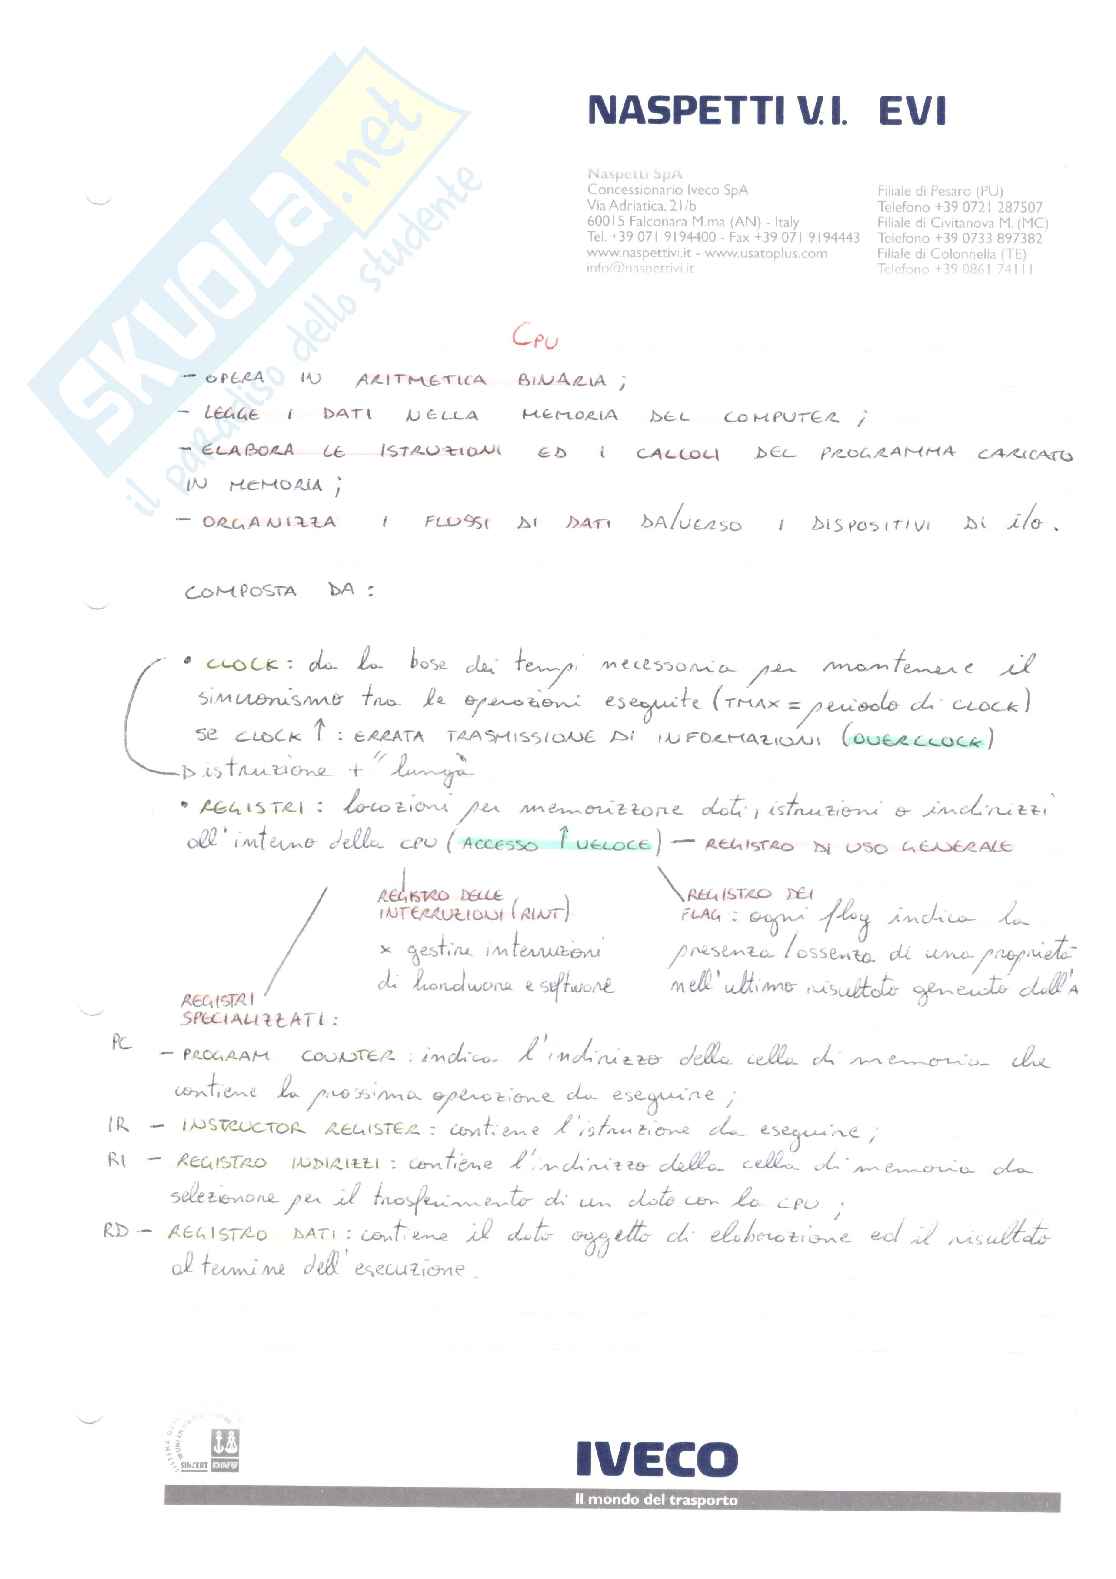 SKUOLA.net
il paradiso dello studente
NASPETTI V.I. EVI
Naspetti SpA
Concessionario Iveco SpA
Via Adriatica, 21/b
60015 Falconara M.ma (AN) - Italy
Tel. +39 071 9194400 - Fax +39 071 9194443
www.naspettivi.it - www.usatoplus.com
info@naspettivi.it
Filiale di Pesaro (PU)
Telefono +39 0721 287507
Filiale di Civitanova M. (MC)
Telefono +39 0733 897382
Filiale di Colonnella (TE)
Telefono +39 0861 74111
CPU
- OPERA IN ARITMETICA BINARIA;
- LEGGE I DATI NELLA MEMORIA DEL COMPUTER;
- ELABORA LE ISTRUZIONI ED I CALCOLI DEL PROGRAMMA CARICATO
IN MEMORIA;
- ORGANIZZA I FLUSSI DI DATI DA/VERSO I DISPOSITIVI DI i/o.
COMPOSTA DA:
• CLOCK: da la base dei tempi necessaria per mantenere il
sincronismo tra le operazioni eseguite (TMAX = periodo di CLOCK)
SE CLOCK ↑: ERRATA TRASMISSIONE DI INFORMAZIONI (OVERCLOCK)
istruzione + "lunga"
• REGISTRI: locazioni per memorizzare dati, istruzioni o indirizzi
all'interno della CPU (ACCESSO ↑ VELOCE) — REGISTRO DI USO GENERALE
REGISTRO DELLE
INTERRUZIONI (RINT)
x gestire interruzioni
di hardware e software
REGISTRO DEI
FLAG: ogni flag indica la
presenza/assenza di una proprietà
nell'ultimo risultato generato dall'A
REGISTRI
SPECIALIZZATI:
PC - PROGRAM COUNTER: indica l'indirizzo della cella di memoria che
contiene la prossima operazione da eseguire;
IR - INSTRUCTOR REGISTER: contiene l'istruzione da eseguire;
RI - REGISTRO INDIRIZZI: contiene l'indirizzo della cella di memoria da
selezionare per il trasferimento di un dato con la CPU;
RD - REGISTRO DATI: contiene il dato oggetto di elaborazione ed il risultato
al termine dell'esecuzione.
SINCERT
IVECO
Il mondo del trasporto